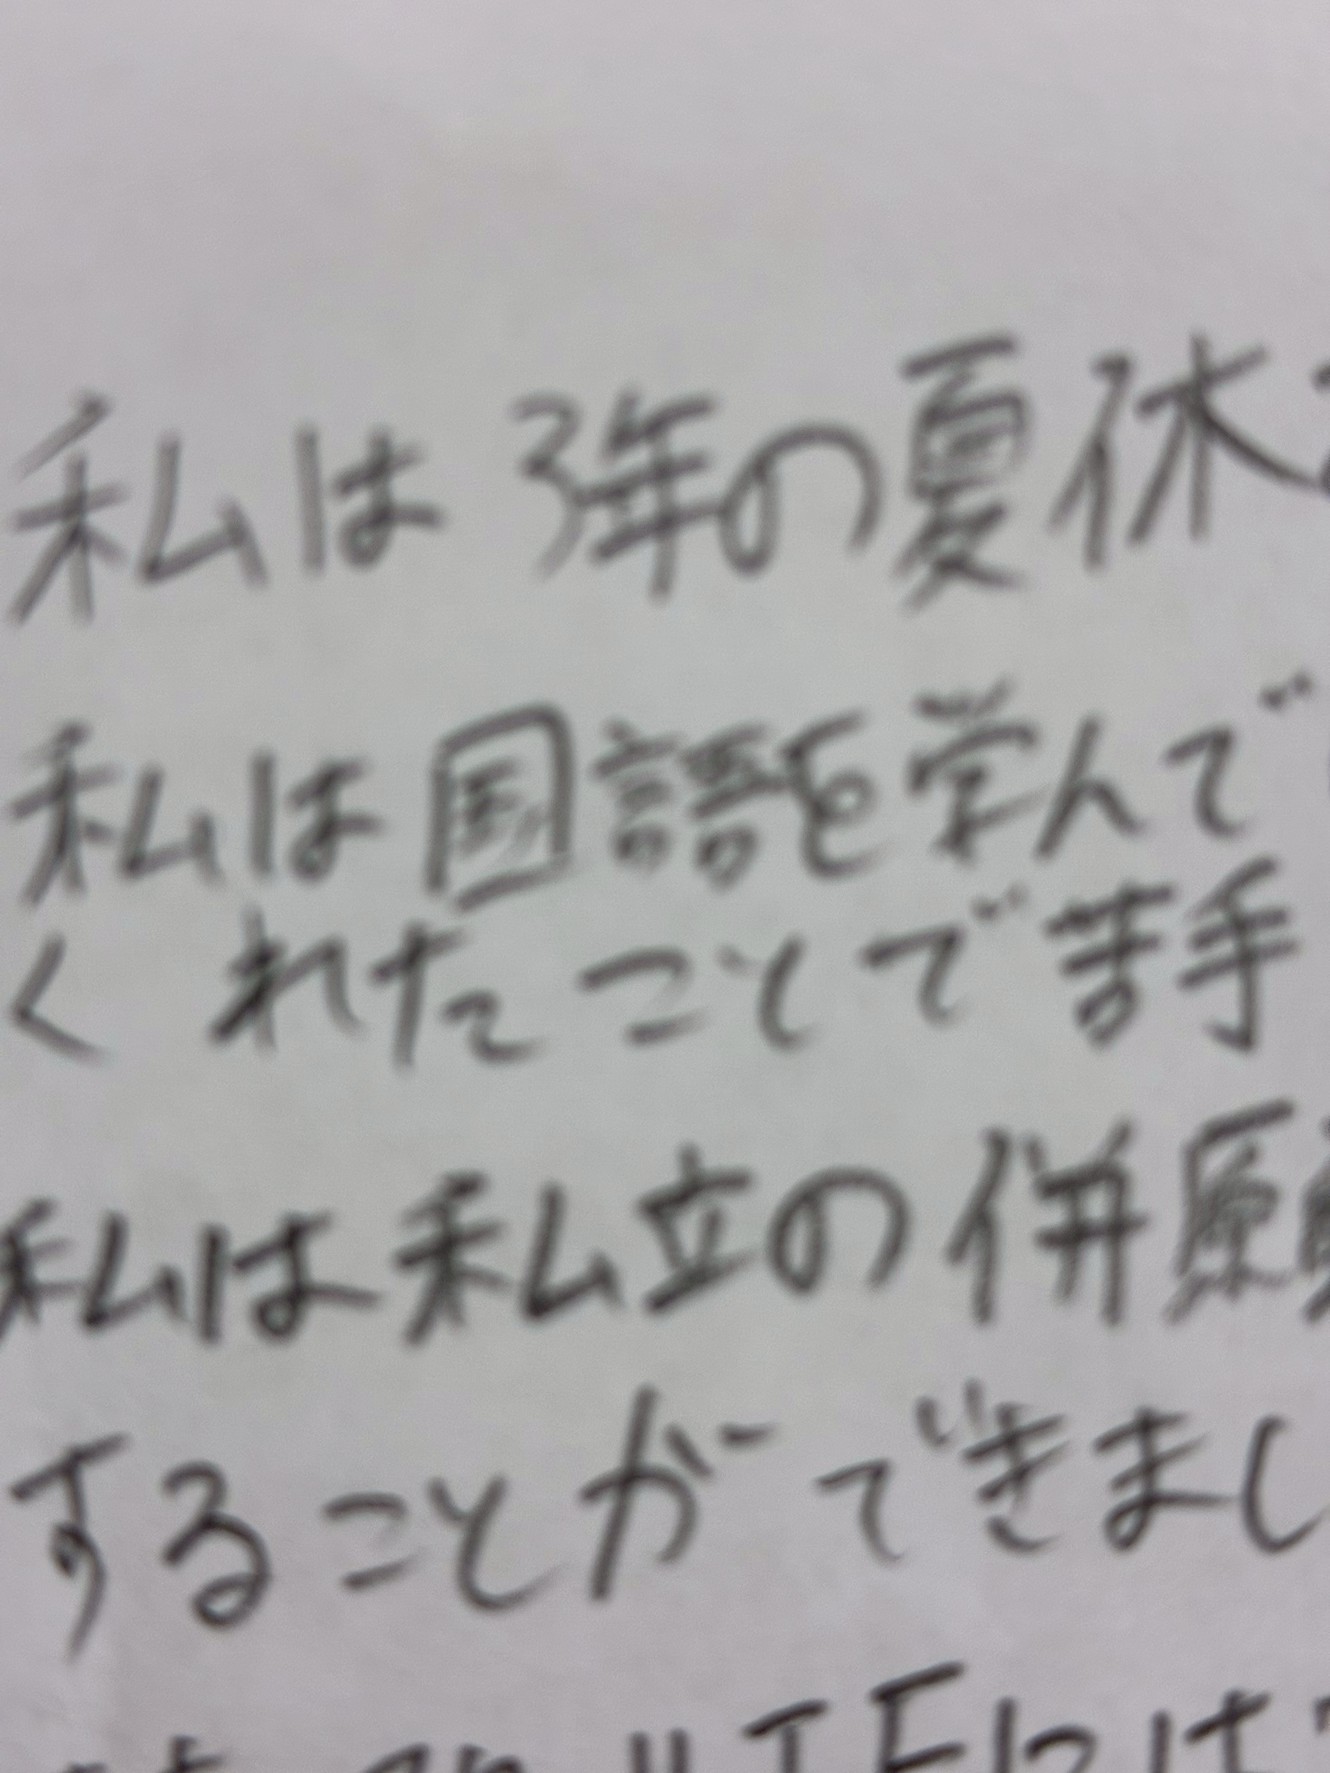 私は3年の夏休
私は国語を学んで
くれたことで苦手
私は私立の併願
することができまし